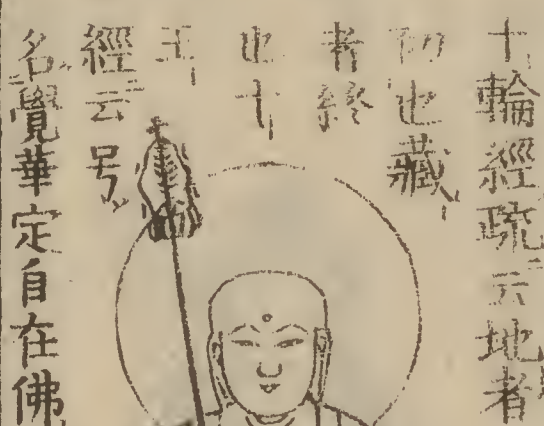 十輪經疏云地者
初也藏
者終
也十
王
經云号
名覺華定自在佛